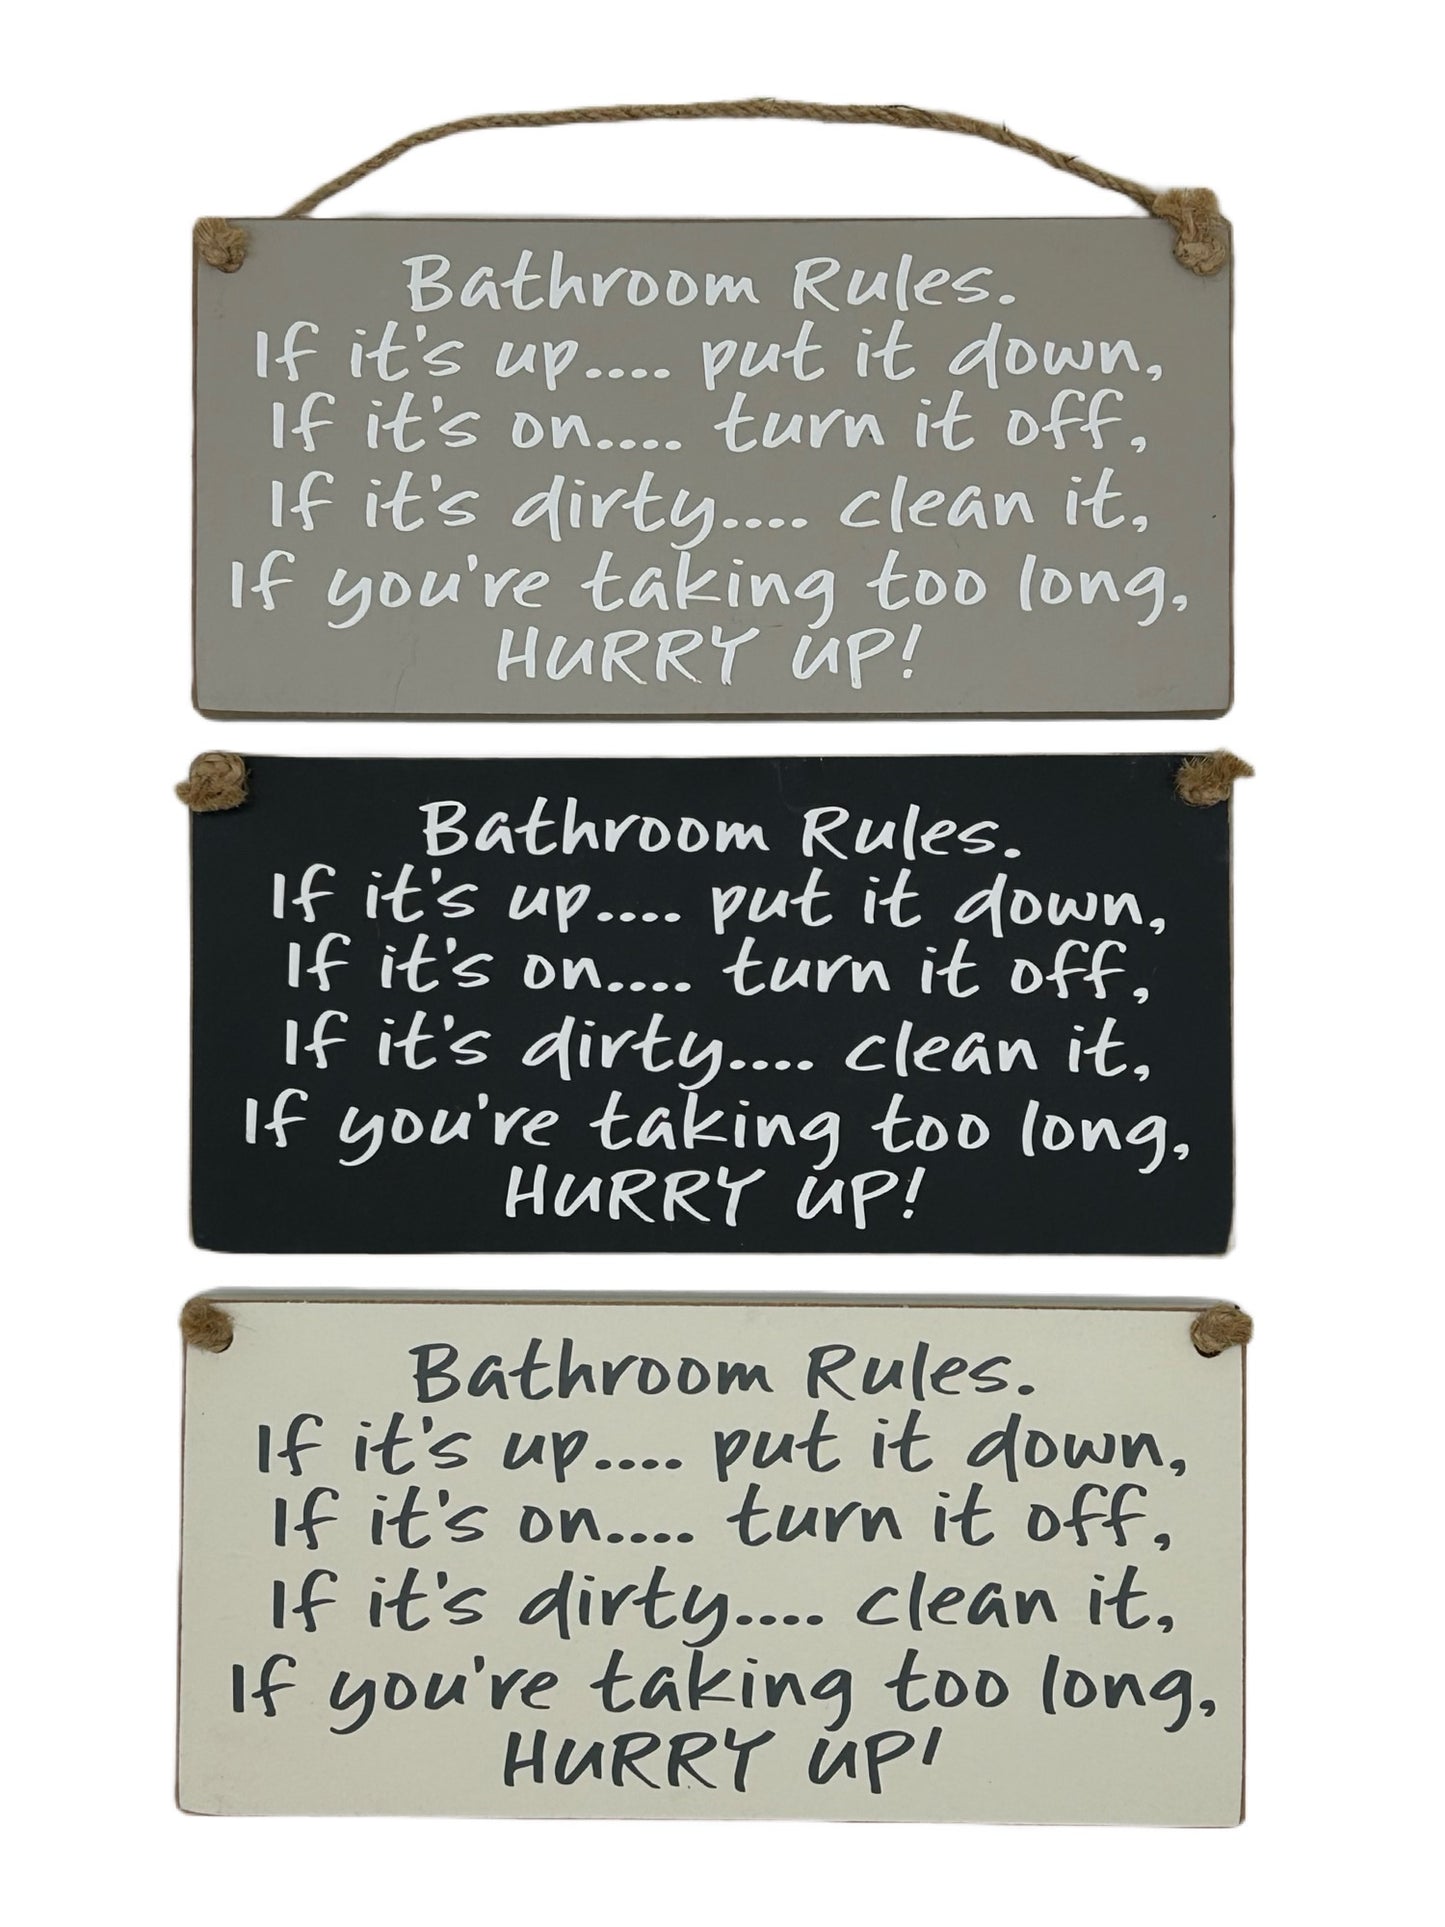 Bathroom Rules.
If it's up.... put it down,
If it's on.... turn it off,
If it's dirty.... clean it,
If you're taking too long,
HURRY UP!
Bathroom Rules.
If it's up.... put it down,
If it's on.... turn it off,
If it's dirty.... clean it,
If you're taking too long,
HURRY UP!
Bathroom Rules.
If it's up.... put it down,
If it's on.... turn it off,
If it's dirty.... clean it,
If you're taking too long,
HURRY UP'